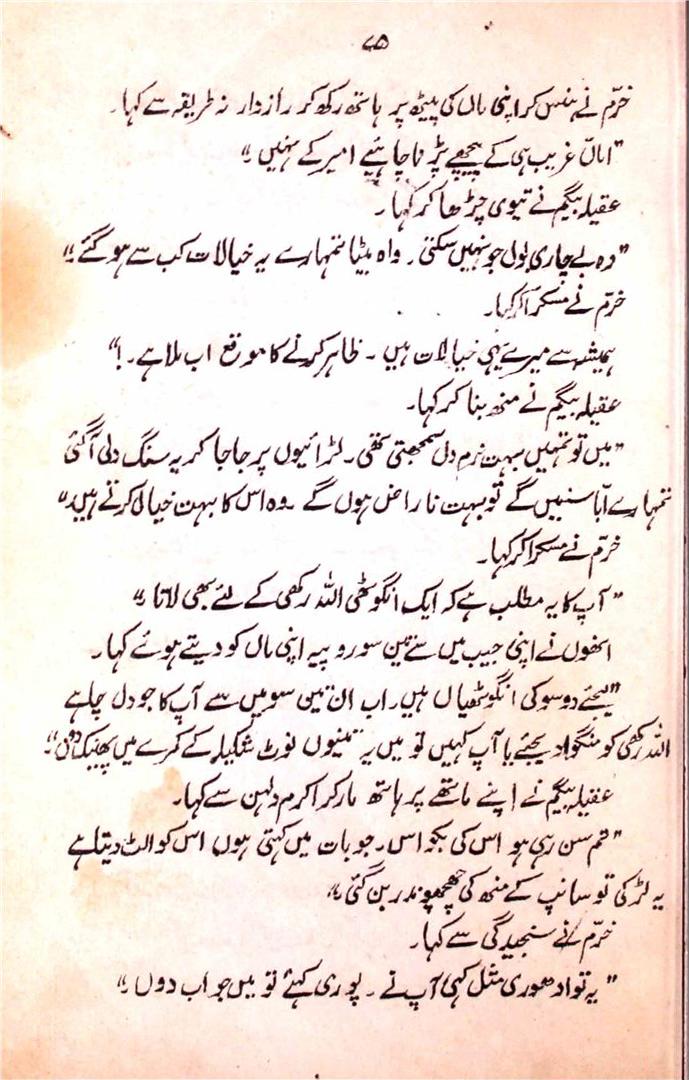 ۸۵
خرّم نے ہنس کر اپنی ماں کی پیٹھ پر ہاتھ رکھ کر رازدارانہ طریقہ سے کہا۔
"اماں غریب ہی کے پیچھے پڑنا چاہئیے امیر کے نہیں۔"
عقیلہ بیگم نے تیوری چڑھا کر کہا۔
"وہ بے چاری بول جو نہیں سکتی۔ واہ بیٹا تمہارے یہ خیالات کب سے ہو گئے۔"
خرّم نے مسکرا کر کہا۔
ہمیشہ سے میرے یہی خیالات ہیں۔ ظاہر کرنے کا موقع اب ملا ہے۔!"
عقیلہ بیگم نے منھ بنا کر کہا۔
"میں تو تمہیں بہت نرم دل سمجھتی تھی۔ لڑائیوں پر جا جا کر یہ سنگ دلی آ گئی
تمہارے ابّا سنیں گے تو بہت ناراض ہوں گے۔ وہ اس کا بہت خیال کرتے ہیں۔"
خرّم نے مسکرا کر کہا۔
"آپ کا یہ مطلب ہے کہ ایک انگوٹھی اللہ رکھی کے لئے بھی لاتا۔"
انھوں نے اپنی جیب میں سے تین سو روپیہ اپنی ماں کو دیتے ہوئے کہا۔
"لیجئے دو سو کی انگوٹھیاں ہیں۔ اب ان تین سو میں سے آپ کا جو دل چاہے
اللہ رکھی کو منگوا دیجئے یا آپ کہیں تو میں یہ تینوں نوٹ شکیلہ کے کمرے میں پھینک دوں۔"
عقیلہ بیگم نے اپنے ماتھے پر ہاتھ مار کر اکرم دلہن سے کہا۔
"تم سن رہی ہو اس کی بکواس۔ جو بات میں کہتی ہوں اس کو الٹ دیتا ہے
یہ لڑکی تو سانپ کے منھ کی چھچھوندر بن گئی۔"
خرّم نے سنجیدگی سے کہا۔
"یہ تو ادھوری مثل کہی آپ نے۔ پوری کہئے تو میں جواب دوں۔"